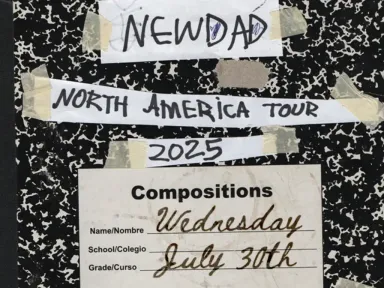 NEWDAD
NORTH AMERICA TOUR
2025
Compositions
Name/Nombre Wednesday
School/Colegio July 30th
Grade/Curso